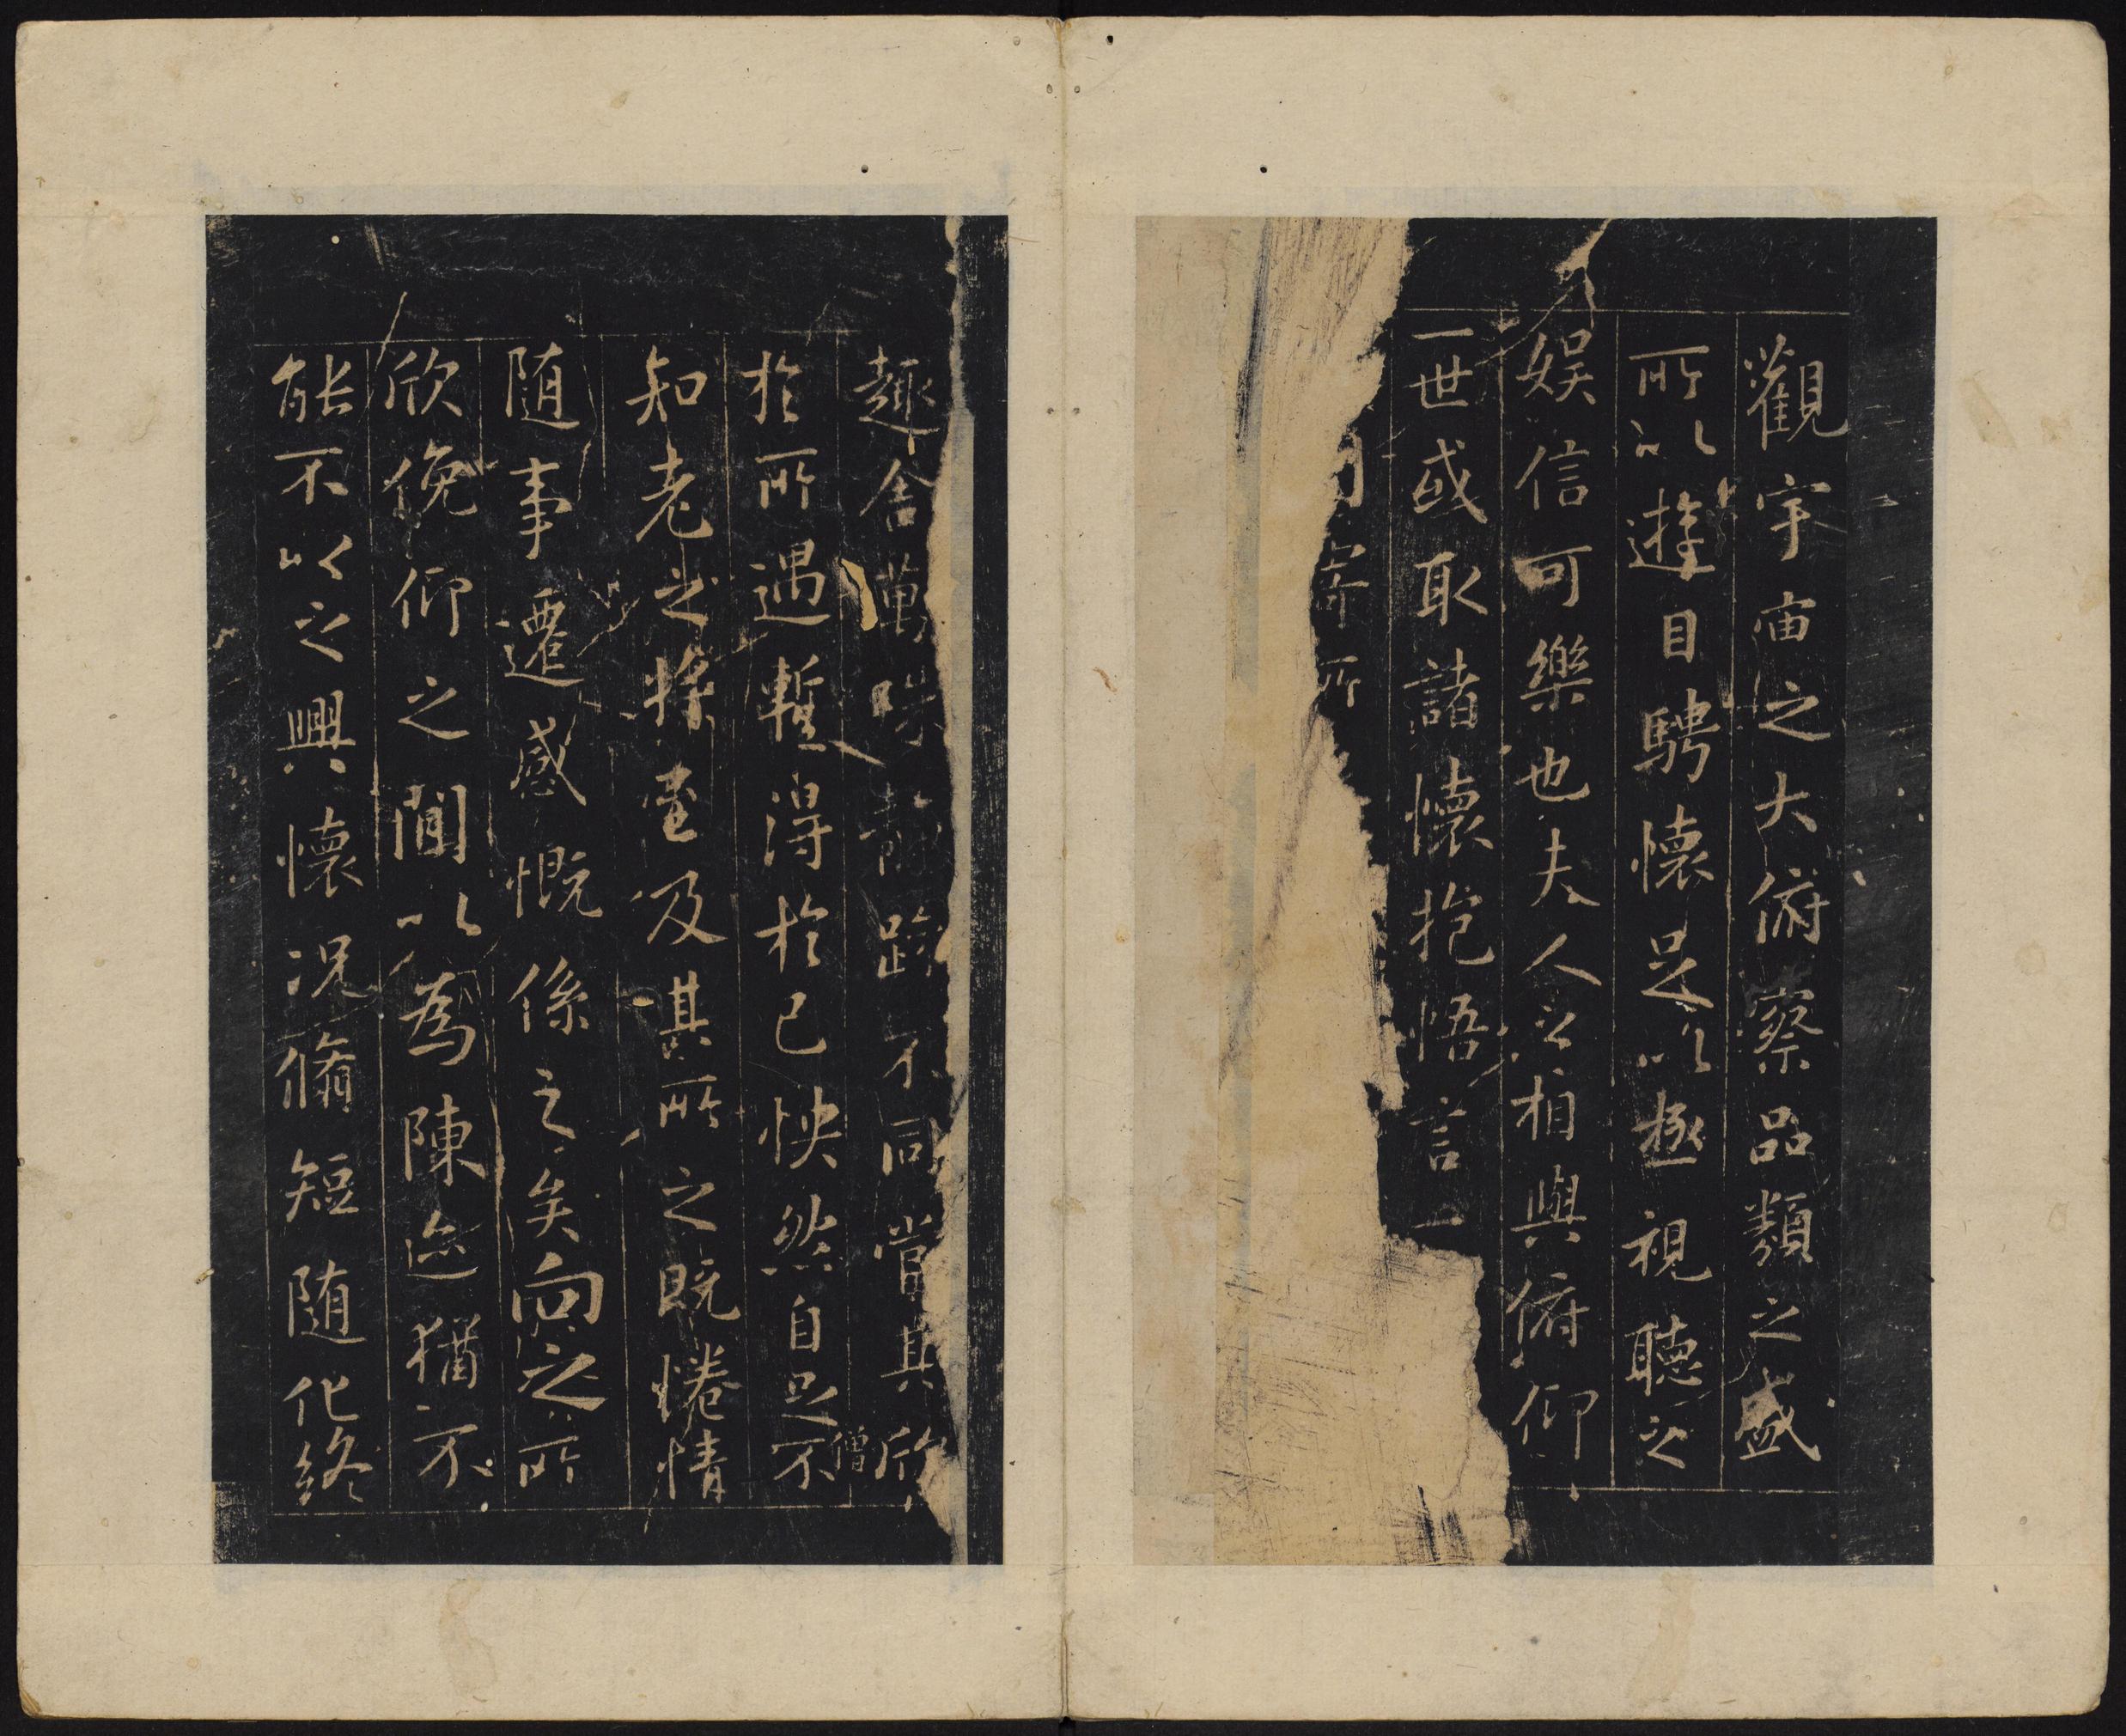 觀宇宙之大俯察品類之盛
所以遊目騁懷足以極視聽之
娛信可樂也夫人之相與俯仰
一世或取諸懷抱悟言一
寄所
趣舍萬殊静躁不同當其欣
於所遇暫得於己怏然自足不
僧
知老之將至及其所之既惓情
随事遷感慨係之矣向之所
欣俛仰之閒以為陳迹猶不
能不以之興懷況脩短随化終